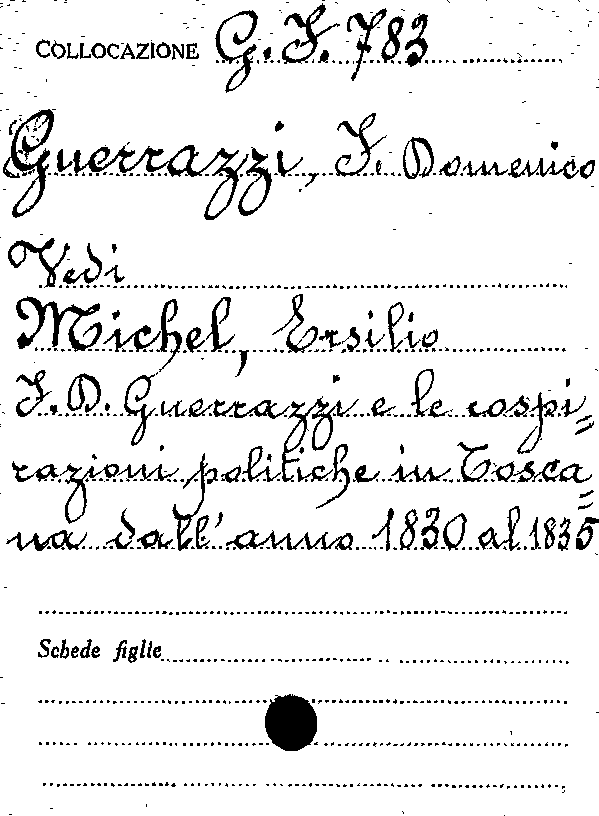 COLLOCAZIONE G. F. 783
Guerrazzi, F. Domenico
Vedi
Michel, Ersilio
F. D. Guerrazzi e le cospi=
razioni politiche in Tosca=
na dall'anno 1830 al 1835
Schede figlie